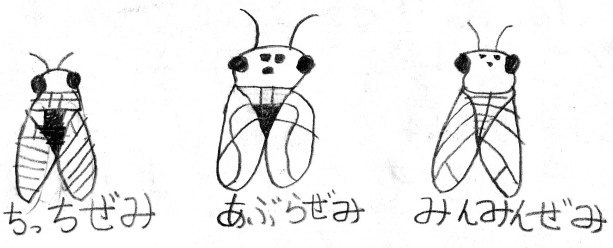 ちっちぜみ
あぶらぜみ
みんみんぜみ